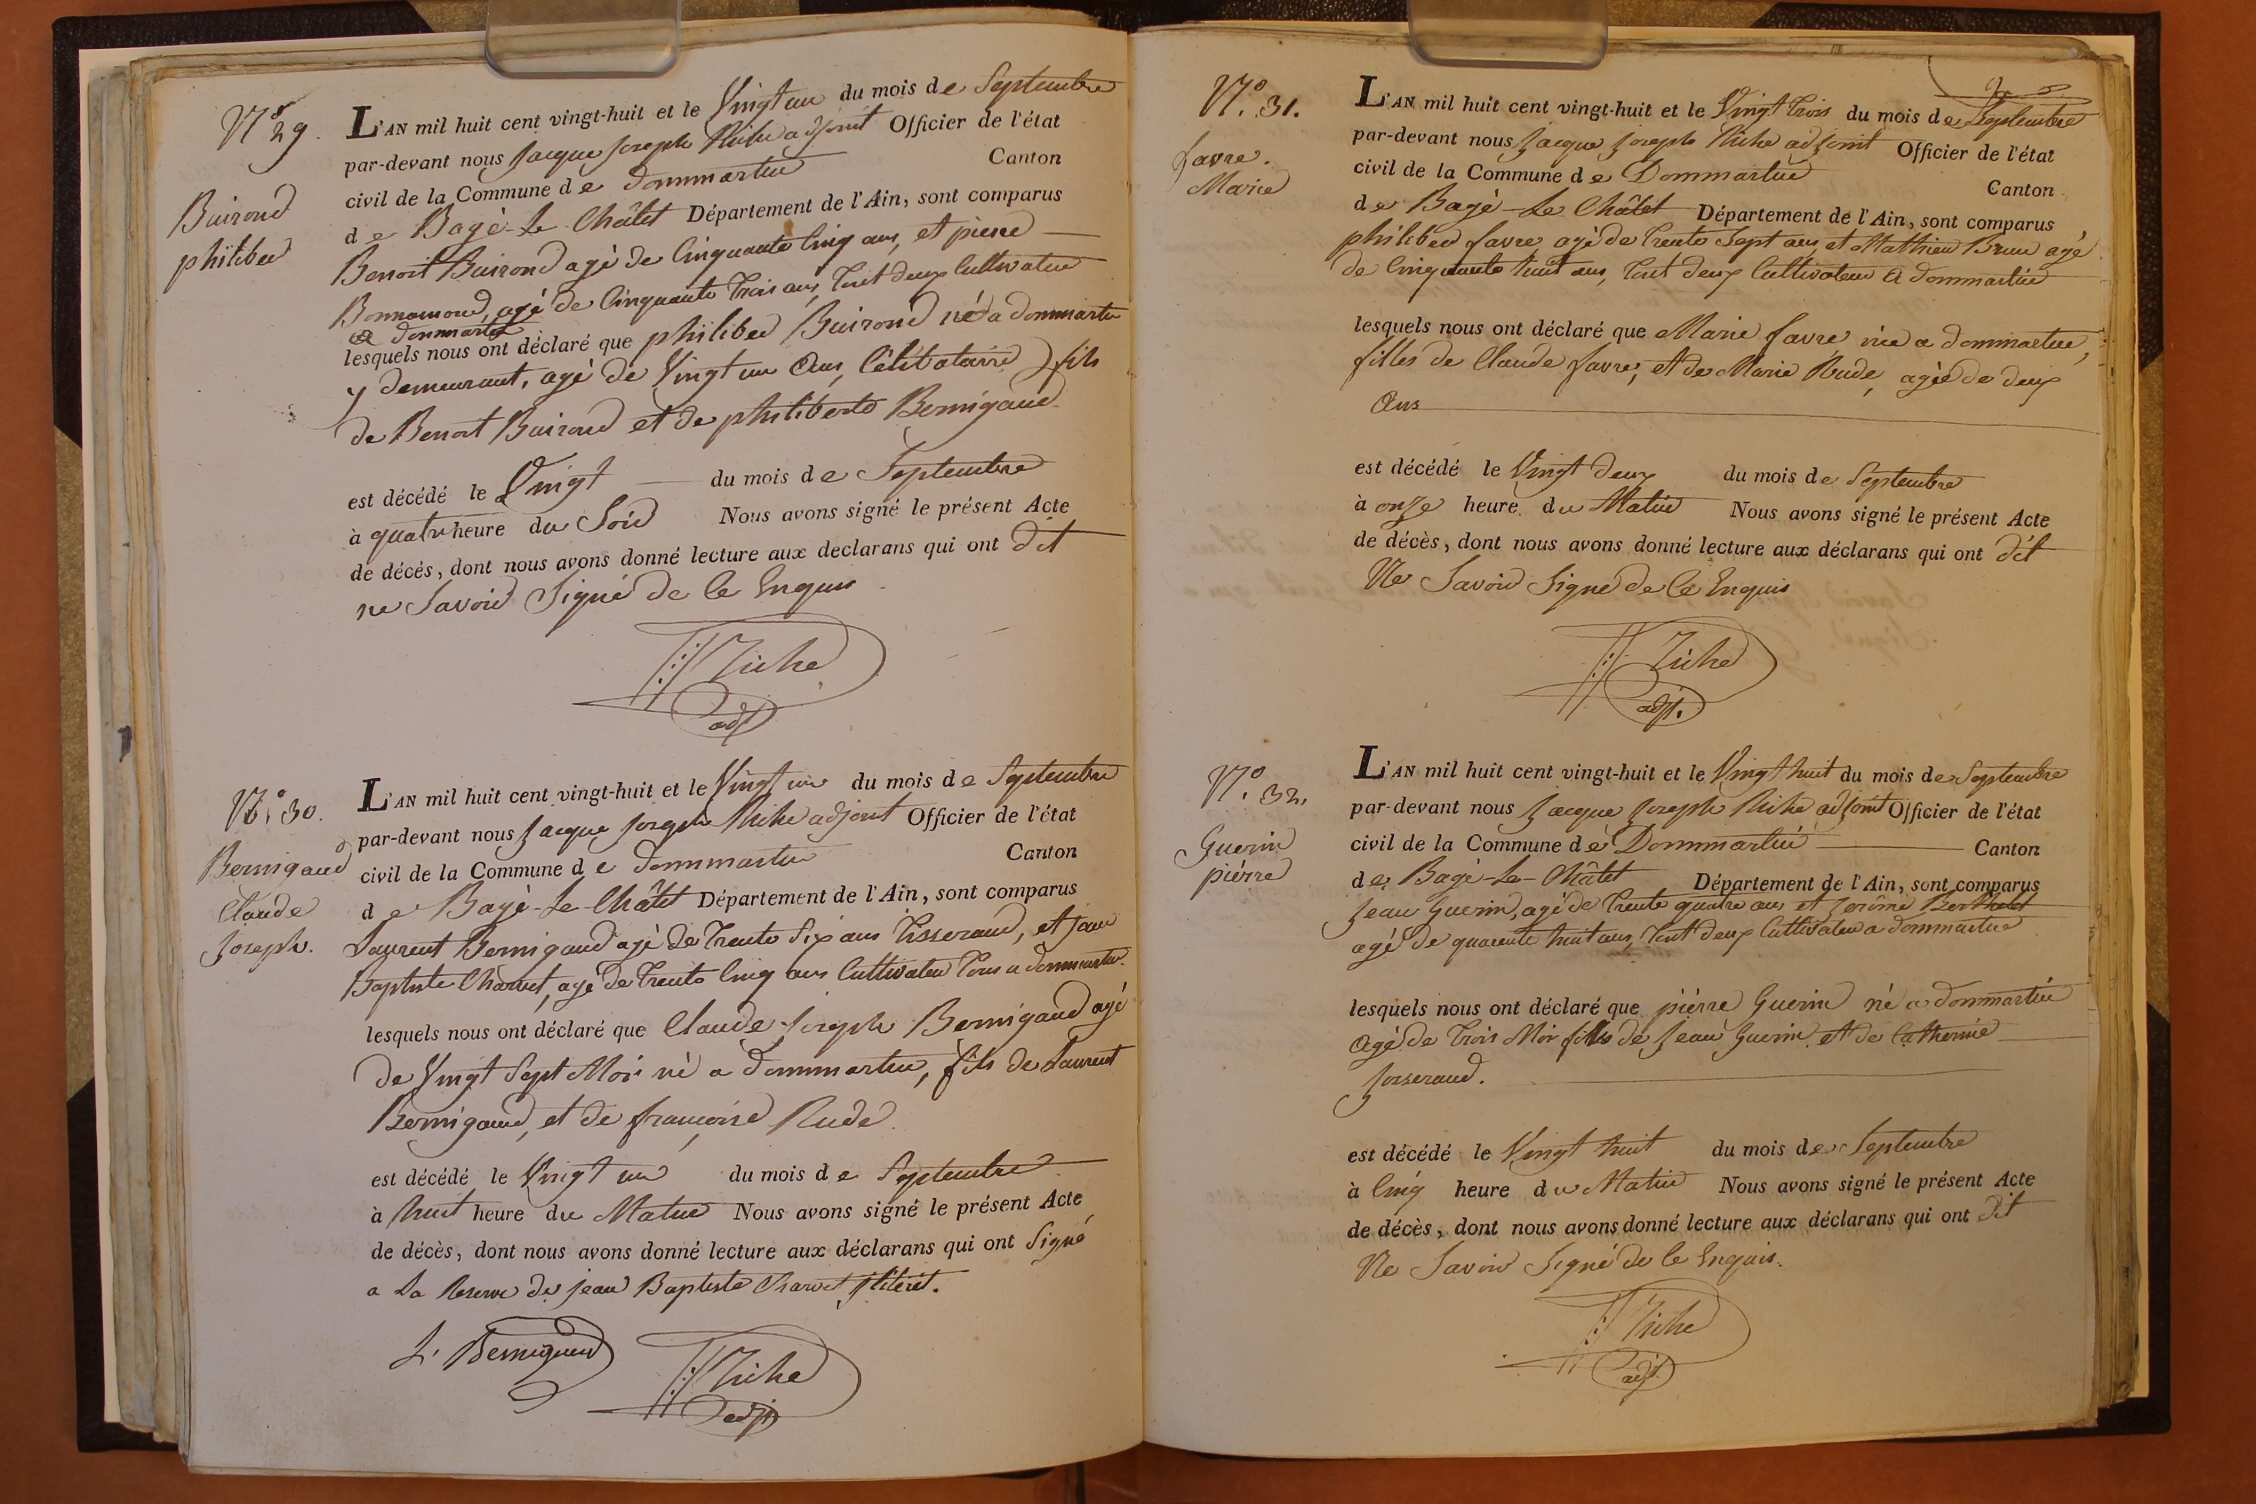 N° 29.
Buirond
philiber
L'AN mil huit cent vingt-huit et le Vingt un du mois de Septembre
par-devant nous Jacque Joseph Riche adjoint Officier de l'état
civil de la Commune de Dommartin Canton
de Bagé-Le Châtel Département de l'Ain, sont comparus
Benoit Buirond agé de Cinquante Cinq ans, et pierre
Bonnamour, agé de Cinquante Trois ans, Tout deux Cultivateur
a dommartin
lesquels nous ont déclaré que philiber Buirond né a dommartin
y demeurant, agé de Vingt un Ans, Célibataire fils
de Benoit Buirond et de philiberte Bernigaud
est décédé le Vingt du mois de Septembre
à quatre heure du Soir Nous avons signé le présent Acte
de décés, dont nous avons donné lecture aux declarans qui ont dit
ne Savoir Signé de Ce Enquis
Riche
adjt
N° 30.
Bernigaud
Claude
Joseph.
L'AN mil huit cent vingt-huit et le Vingt un du mois de Septembre
par-devant nous Jacque Joseph Riche adjoint Officier de l'état
civil de la Commune de dommartin Canton
de Bagé-Le Châtel Département de l'Ain, sont comparus
Laurent Bernigaud agé de Trente Six ans Tisserand, et jean
Baptiste Charvet, agé de Trente Cinq ans Cultivateur Tous a dommartin.
lesquels nous ont déclaré que Claude Joseph Bernigaud agé
de Vingt Sept Moi né a dommartin, fils de Laurent
Bernigaud, et de françoise Rude
est décédé le Vingt un du mois de Septembre
à huit heure du Matin Nous avons signé le présent Acte
de décès, dont nous avons donné lecture aux déclarans qui ont Signé
a La Reserve de jean Baptiste Charvet, jlitéret.
L. Bernigaud
Riche
adjt
N°. 31.
favre.
Marie
L'AN mil huit cent vingt-huit et le Vingt Trois du mois de Septembre
par-devant nous Jacque Joseph Riche adjoint Officier de l'état
civil de la Commune de Dommartin Canton
de Bagé-Le Châtel Département de l'Ain, sont comparus
philiber favre agé de Trente Sept ans et Mathieu Brun agé
de Cinquante huit ans, Tout deux Cultivateur a dommartin
lesquels nous ont déclaré que Marie favre née a dommartin,
filles de Claude favre, et de Marie Rude, agée de deux
Ans
est décédé le Vingt deux du mois de Septembre
à onze heure du Matin Nous avons signé le présent Acte
de décès, dont nous avons donné lecture aux déclarans qui ont dit
Ne Savoir Signé de Ce Enquis
Riche
adjt.
N°. 32.
Guerin
piérre
L'AN mil huit cent vingt-huit et le Vingt huit du mois de Septembre
par-devant nous Jacque Joseph Riche adjoint Officier de l'état
civil de la Commune de Dommartin Canton
de Bagé-Le-Châtel Département de l'Ain, sont comparus
Jean Guerin, agé de Trente quatre ans et Jerôme Berthelet
agé de quarente huit ans, Tout deux Cultivateur a dommartin
lesquels nous ont déclaré que piérre Guerin né a dommartin
agé de Trois Moi fils de Jean Guerin et de Catherine
Josserand.
est décédé le Vingt huit du mois de Septembre
à Cinq heure du Matin Nous avons signé le présent Acte
de décès, dont nous avons donné lecture aux déclarans qui ont dit
Ne Savoir Signé de Ce Enquis.
Riche
adjt